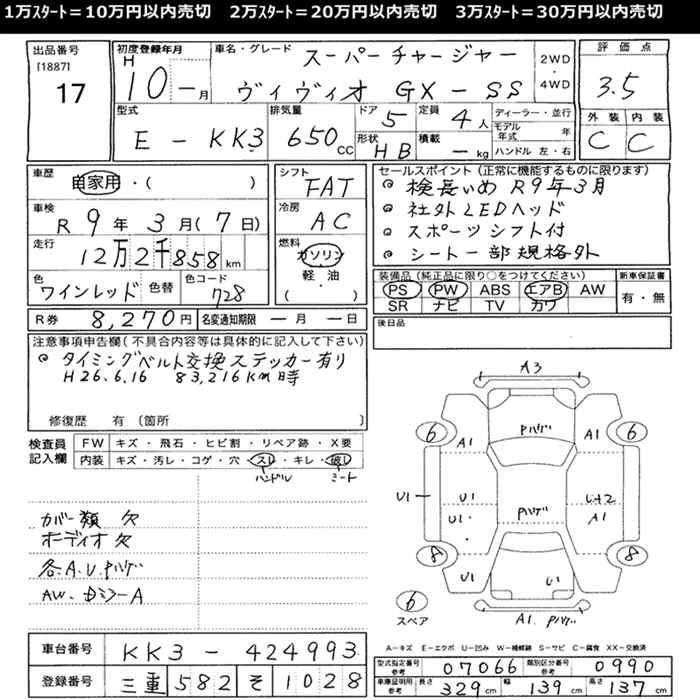 1万スタート＝10万円以内売切　2万スタート＝20万円以内売切　3万スタート＝30万円以内売切
出品番号
[1887]
17
初度登録年月
H
10 － 月
車名・グレード
スーパーチャージャー
ヴィヴィオ GX－SS
2WD
・
4WD
評価点
3.5
外装　内装
C　C
型式
E － KK3
排気量
650 CC
ドア
5
形状
HB
定員
4 人
積載
－ kg
ディーラー・並行
モデル年式　年
ハンドル 左・右
車歴
自家用・(　　　)
車検
R 9 年 3 月 ( 7 日)
走行
12万2千858 km
色
ワインレッド
色替
色コード
728
シフト
FAT
冷房
AC
燃料
ガソリン
軽・油
(　　)
セールスポイント (正常に機能するものに限ります)
検長いめ R9年3月
社外LEDヘッド
スポーツシフト付
シート一部規格外
装備品 (純正品に限り○をつけてください)
PS PW ABS エアB AW
SR ナビ TV カワ
新車保証書
有・無
R券
8,270円
名変通知期限
－月 －日
後日品
注意事項申告欄 (不具合内容等は具体的に記入して下さい)
タイミングベルト交換ステッカー有り
H26.6.16　83,216km時
修復歴　有 〔箇所
検査員
記入欄
FW キズ・飛石・ヒビ割・リペア跡・X要
内装 キズ・汚レ・コゲ・穴・スレ・キレ・破レ
ハンドル　シート
カバー類 欠
オーディオ欠
各A.U.Pハゲ
A3
Pハゲ
6 A1 A1 6
U1 U1 Pハゲ
U1・ A1
8 8
U1 U1
6
スペア
A1. Pハゲ
A－キズ　E－エクボ　U－凹み　W－補修跡　S－サビ　C－腐食　XX－交換済
車台番号
KK3 － 424993
登録番号
三重 582 そ 1028
型式指定番号
参考
07066
類別区分番号
参考
0990
車庫証明用
参考
長さ 329 cm 幅 139 cm 高さ 137 cm